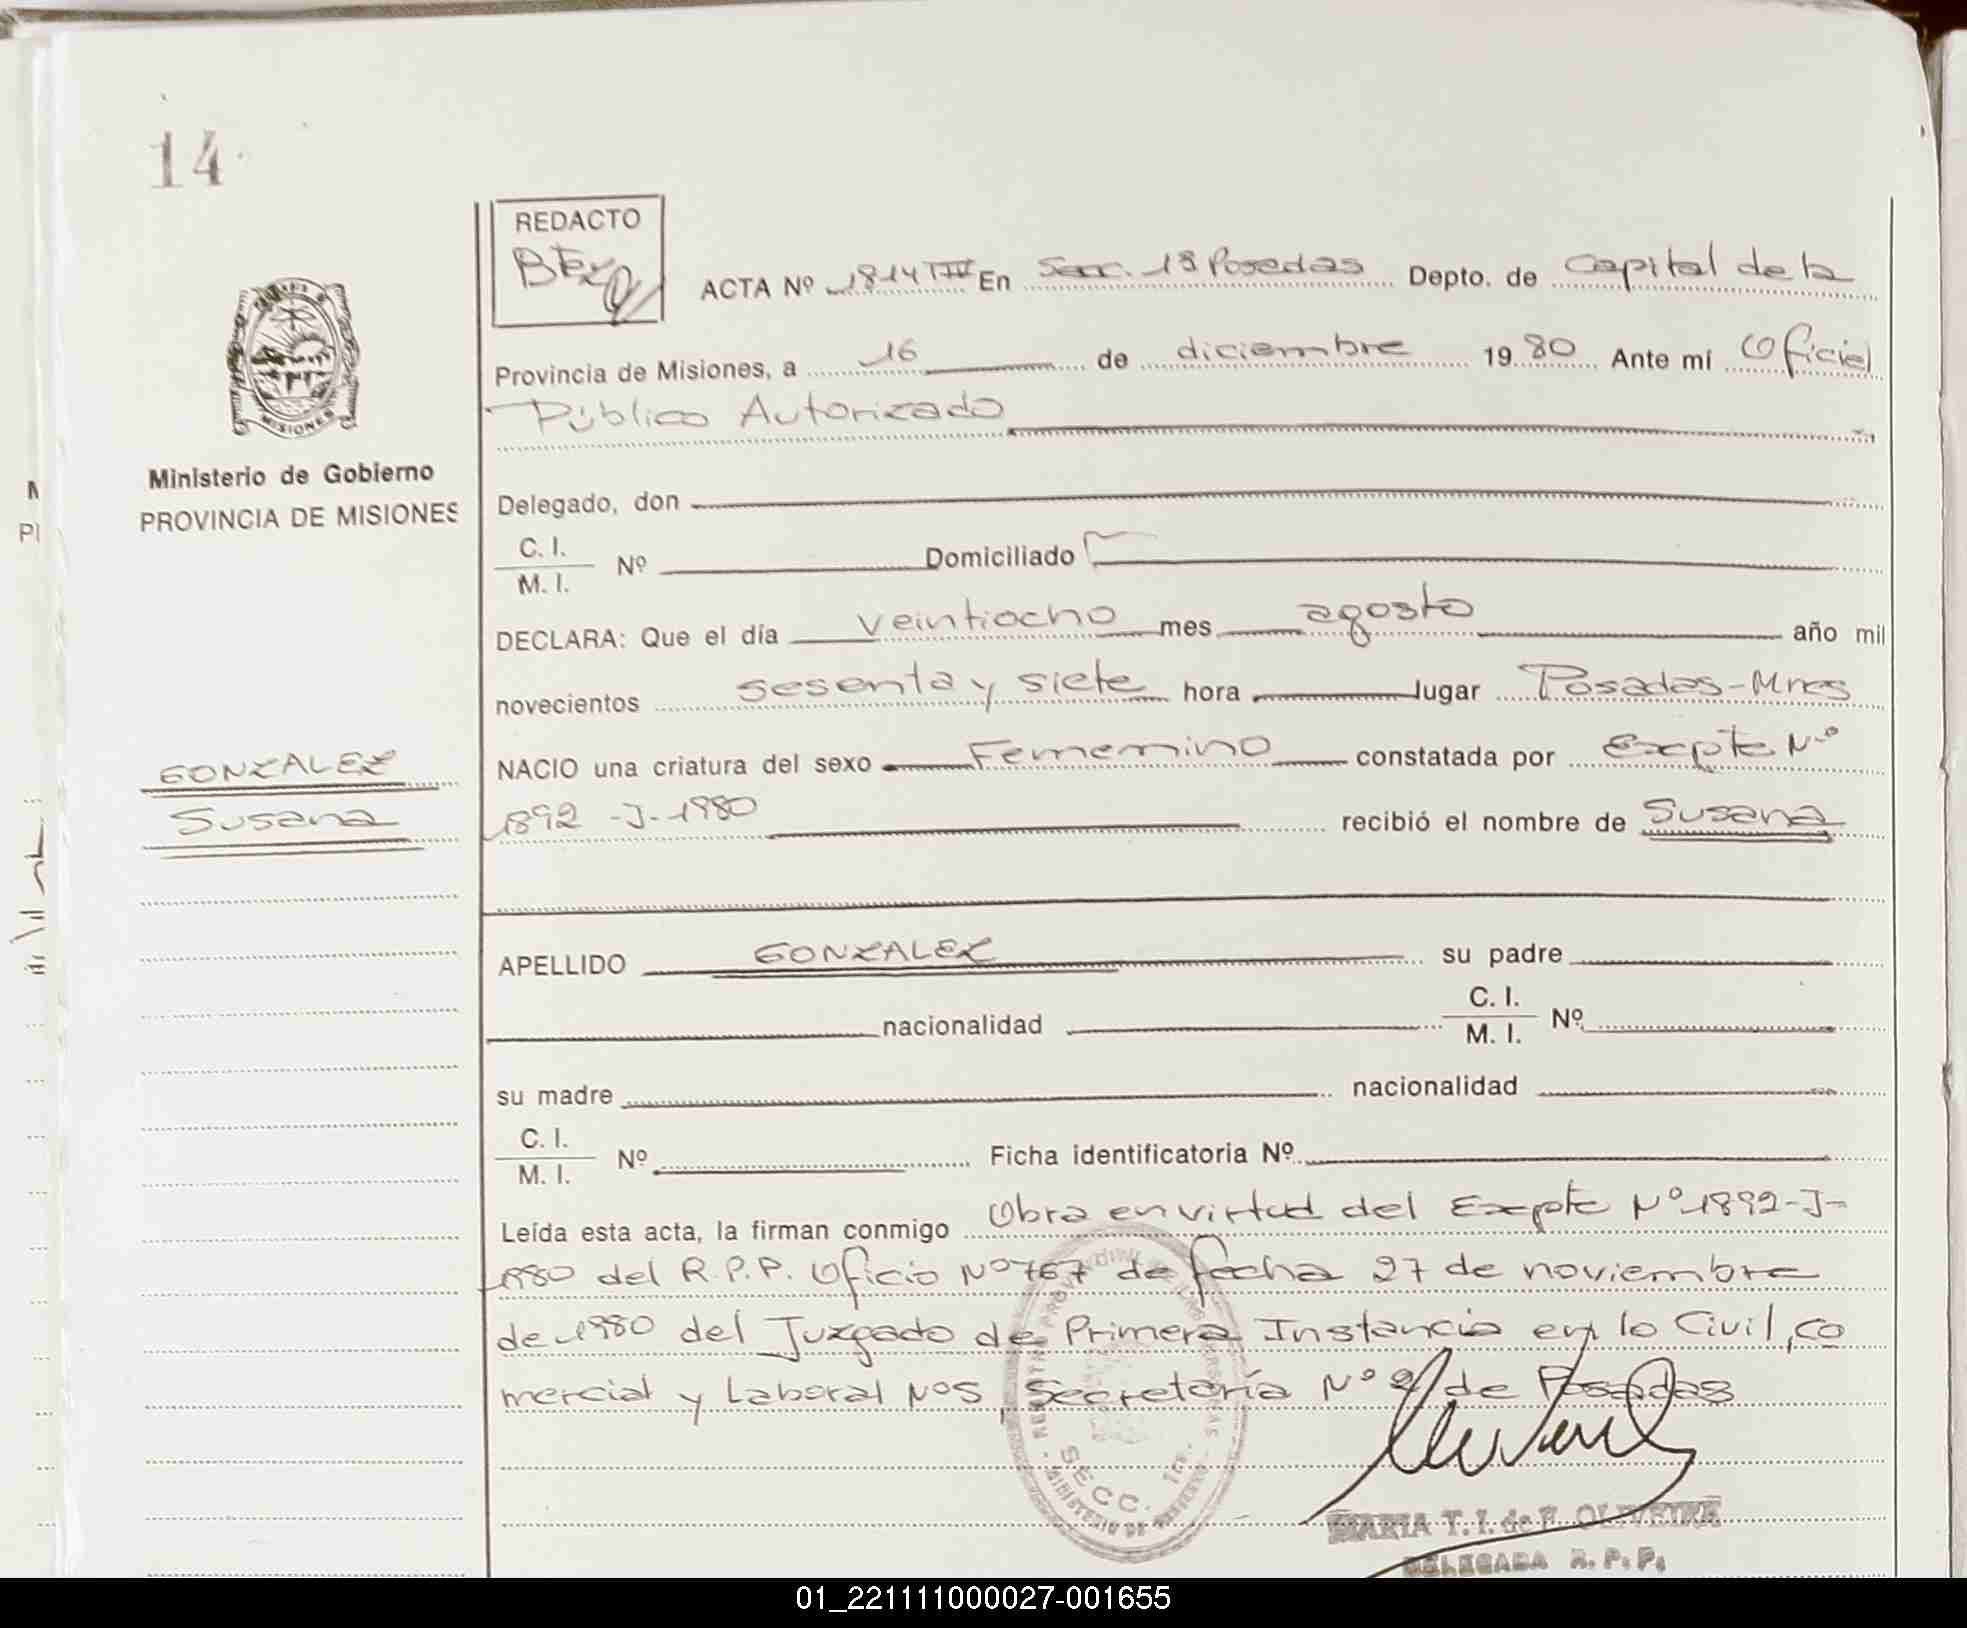 14
REDACTO
ACTA Nº 1814 TIV En Secc. 1ª Posadas Depto. de Capital de la
Provincia de Misiones, a 16 de diciembre 1980 Ante mí Oficial
Público Autorizado
Ministerio de Gobierno
PROVINCIA DE MISIONES
Delegado, don
C. I.
M. I. Nº Domiciliado
DECLARA: Que el día veintiocho mes agosto año mil
novecientos sesenta y siete hora lugar Posadas-Mnes
GONZALEZ
Susana
NACIO una criatura del sexo Femenino constatada por Expte Nº
1892-J-1980 recibió el nombre de Susana
APELLIDO GONZALEZ su padre
nacionalidad C. I.
M. I. Nº
su madre nacionalidad
C. I.
M. I. Nº Ficha identificatoria Nº
Leída esta acta, la firman conmigo Obra en virtud del Expte Nº 1892-J-
1980 del R.P.P. Oficio Nº 767 de fecha 27 de noviembre
de 1980 del Juzgado de Primera Instancia en lo Civil, co
mercial y Laboral Nº5, Secretaría Nº 9 de Posadas
SECC. 1ra.
MARIA T. I. de F. OLIVEYRA
DELEGADA R. P. P.
01_221111000027-001655